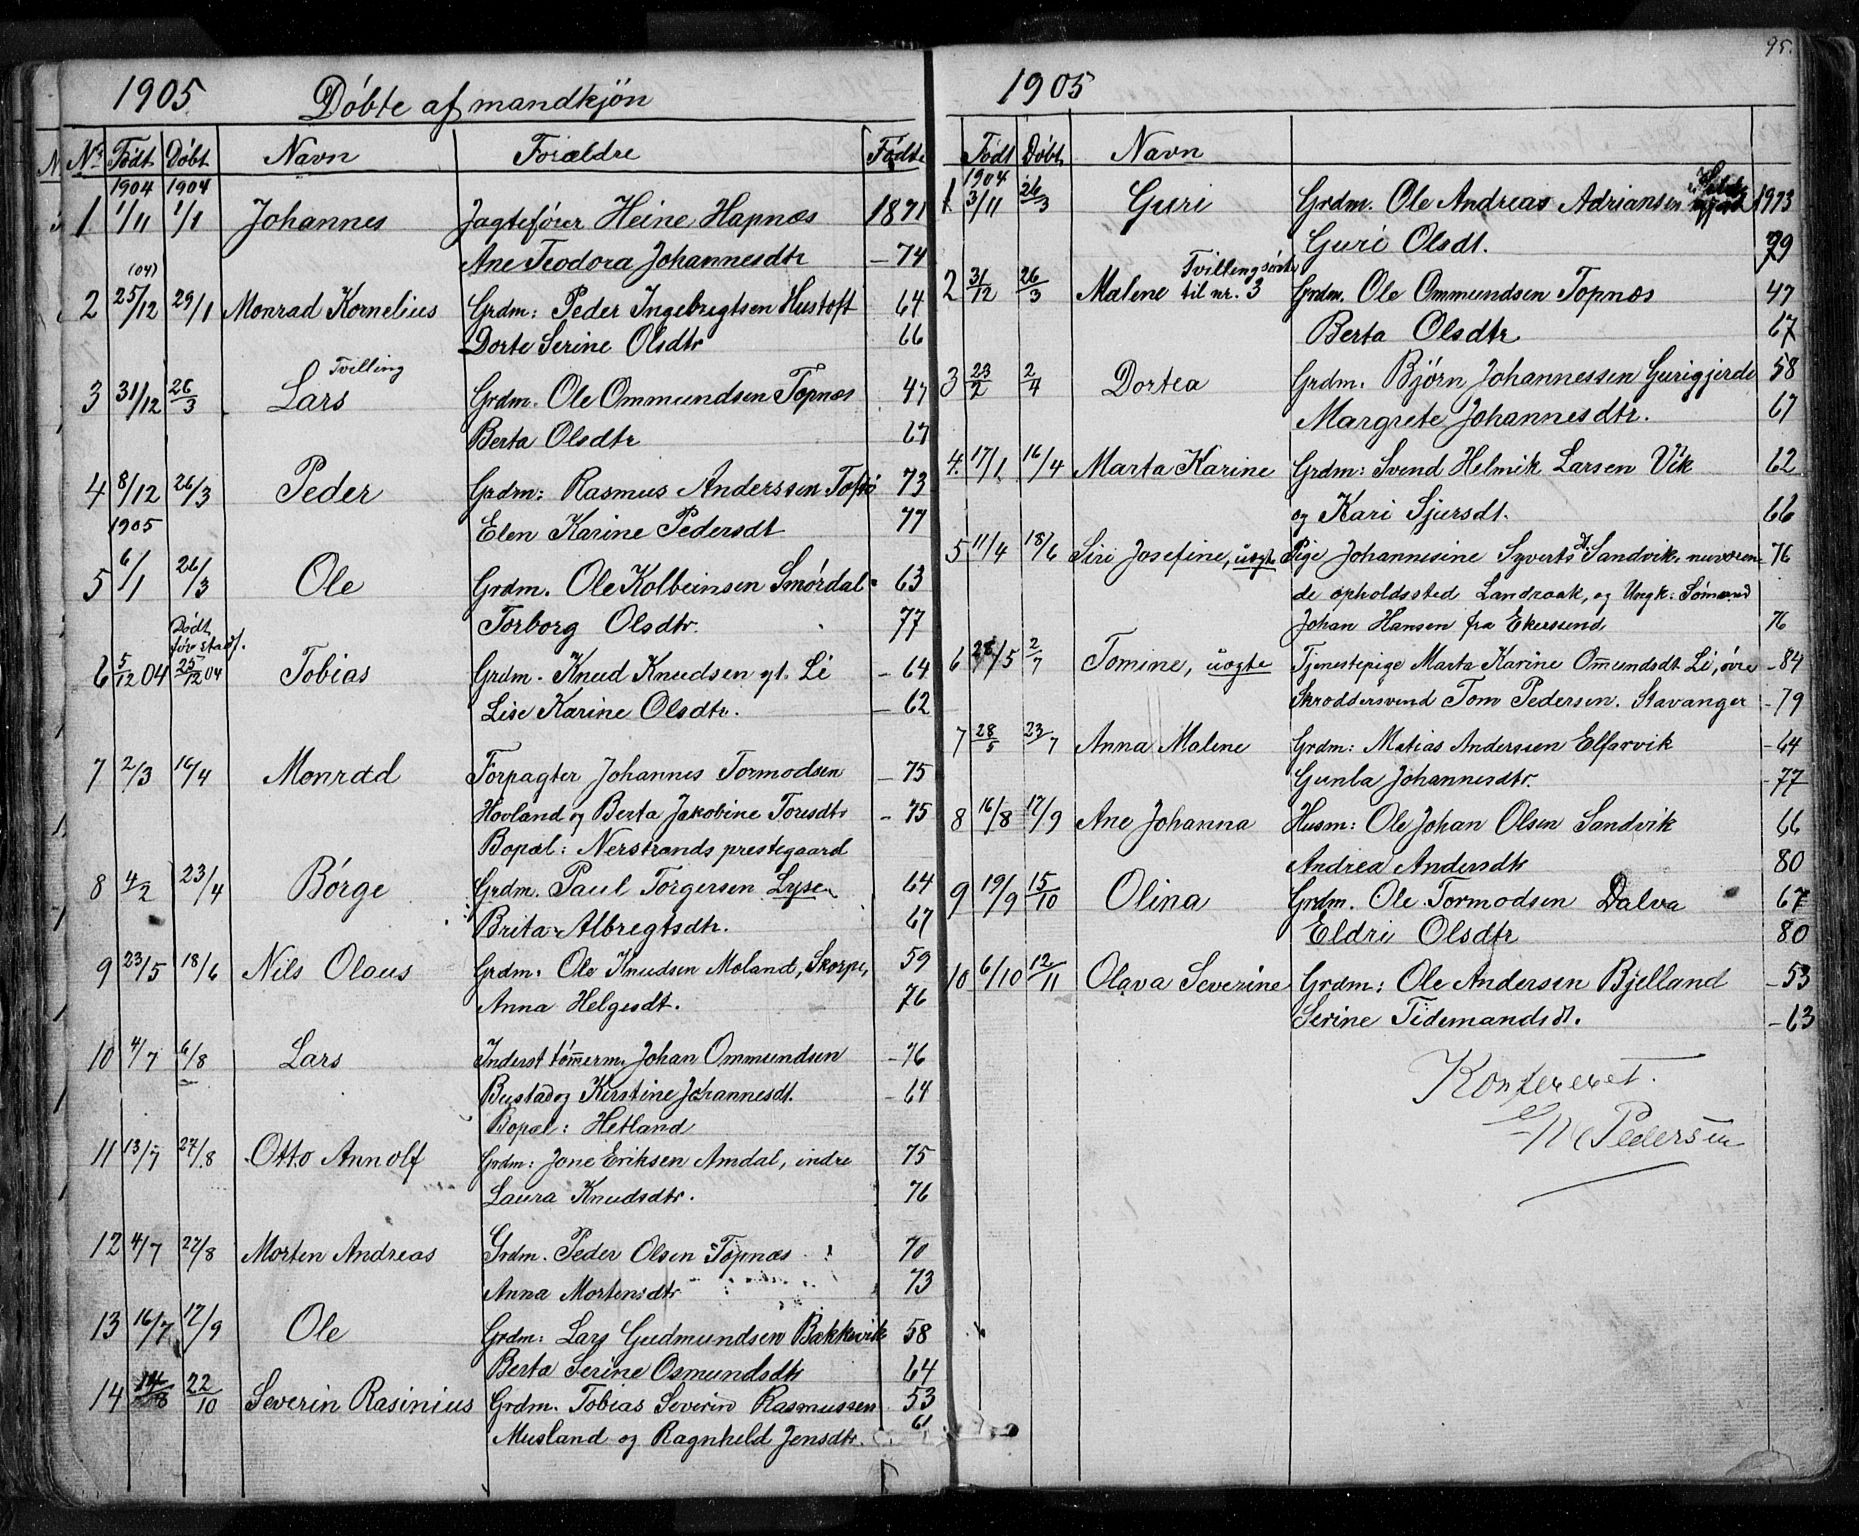 1905
Døbte af mandkjøn
Nr. Født Døbt Navn Forældre Fødte
1904 1904
1 1/11 1/1 Johannes Jagtefører Heine Hapnæs 1871
Ane Teodora Johannesdtr — 74
(04)
2 25/12 29/1 Monrad Kornelius Grdm: Peder Ingebrigtsen Hustoft 64
Dorte Serine Olsdtr 66
Tvilling
3 31/12 26/3 Lars Grdm. Ole Ommundsen Topnæs 47
Berta Olsdtr 67
4 8/12 26/3 Peder Grdm: Rasmus Anderssen 73
1905 Elen Karine Pedersdt 77
5 6/1 26/3 Ole Grdm. Ole Kolbeinsen Smørdal 63
Torborg Olsdtr. 77
Døbt
6 5/12 04 25/12 04 Tobias Grdm. Knud Knudsen yt. Li — 64
Lise Karine Olsdtr. — 62
7 2/3 16/4 Monrad Forpagter Johannes Tormodsen — 75
Hovland og Berta Jakobine Toresdtr — 75
Bopæl: Nerstrands prestegaard
8 4/2 23/4 Børge Grdm. Paul Torgersen Lyse 64
Brita Albregtsdtr. 67
9 23/5 18/6 Nils Olaus Grdm. Ole Knudsen Moland, Skorpe, 59
Anna Helgesdt. 76
10 4/7 6/8 Lars Inderst tømmerm. Johan Ommundsen — 76
Bustad og Kirstine Johannesdt. — 64
Bopæl: Hetland
11 13/7 27/8 Otto Annolf Grdm: Jone Eriksen Amdal, indre 75
Laura Knudsdtr. 76
12 4/7 27/8 Morten Andreas Grdm. Peder Olsen Topnæs 70
Anna Mortensdtr 73
13 16/7 17/9 Ole Grdm: Lars Gudmundsen Bakkevik 58
Berta Serine Osmundsdtr 64
14 22/10 Severin Rasinius Grdm. Tobias Severin Rasmussen 53
Musland og Ragnheld Jensdtr. 61
95.
1905
Født Døbt Navn
1904
1 3/11 26/3 Guri Grdm. Ole Andreas Adriansen 1973
Guri Olsdt. 79
Tvillingsøster
2 31/12 26/3 Malene til nr. 3 Grdm. Ole Ommundsen Topnæs 47
Berta Olsdtr 67
3 23/2 2/4 Dortea Grdm. Bjørn Johannessen Gurigjerde 58
Margrete Johannesdtr. 67
4. 17/1 16/4 Marta Karine Grdm: Svend Helmik Larsen Vik 62
og Kari Sjursdt. 66
5 11/4 18/6 Siri Josefine, uægte Pige Johannesine Syvertsdt Sandvik, nuværen- 76
de opholdssted Landraak, og Ungk: Sømand
Johan Hansen fra Ekersund 76
6 28/5 2/7 Tomine, uægte Tjenestepige Marta Karine Ommundsdt Li, øvre — 84
Skræddersvend Tom Pedersen. Stavanger — 79
7 28/5 23/7 Anna Malene Grdm: Matias Anderssen Elfarvik — 64
Gunla Johannesdtr. — 77
8 16/8 17/9 Ane Johanna Husm: Ole Johan Olsen Sandvik 66
Andrea Andersdtr 80
9 19/9 15/10 Olina Grdm. Ole Tormodsen Dalva 67
Eldri Olsdtr 80
10 6/10 12/11 Olava Severine Grdm: Ole Andersen Bjelland — 53
Serine Tidemandsdt. — 63
Konfereret.
Pedersen